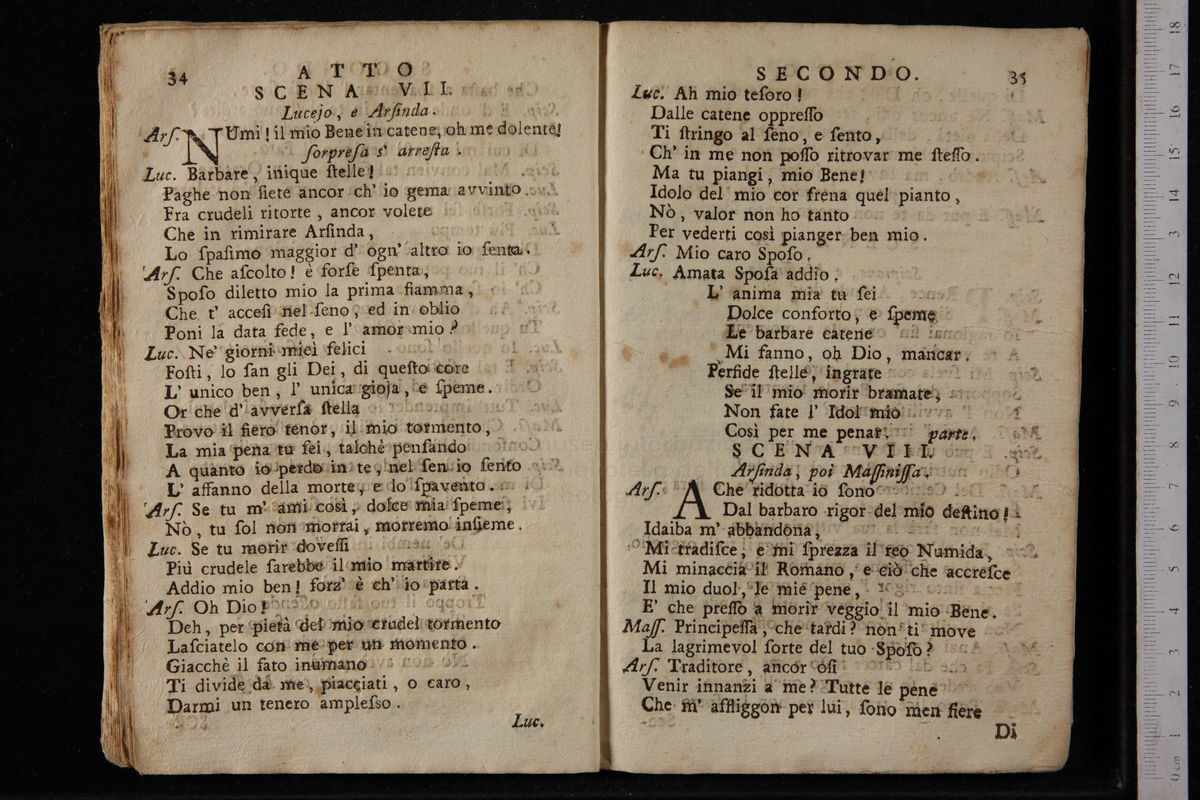 34
ATTO
SCENA VII.
Lucejo, e Arſinda.
Arſ. NUmi! il mio Bene in catene, oh me dolente!
ſorpreſa s' arreſta.
Luc. Barbare, inique ſtelle!
Paghe non ſiete ancor ch' io gema avvinto
Fra crudeli ritorte, ancor volete
Che in rimirare Arſinda,
Lo ſpaſimo maggior d' ogn' altro io ſenta.
Arſ. Che aſcolto! è forſe ſpenta,
Spoſo diletto mio la prima fiamma,
Che t' acceſi nel ſeno, ed in oblio
Poni la data fede, e l' amor mio?
Luc. Ne' giorni miei felici
Foſti, lo ſan gli Dei, di queſto core
L' unico ben, l' unica gioja, e ſpeme.
Or che d' avverſa ſtella
Provo il fiero tenor, il mio tormento,
La mia pena tu ſei, talchè penſando
A quanto io perdo in te, nel ſen io ſento
L' affanno della morte, e lo ſpavento.
Arſ. Se tu m' ami così, dolce mia ſpeme,
Nò, tu ſol non morrai, morremo inſieme.
Luc. Se tu morir doveſſi
Più crudele ſarebbe il mio martire.
Addio mio ben! forz' è ch' io parta.
Arſ. Oh Dio!
Deh, per pietà del mio crudel tormento
Laſciatelo con me per un momento.
Giacchè il fato inumano
Ti divide da me, piacciati, o caro,
Darmi un tenero ampleſso.
Luc.
SECONDO.
35
Luc. Ah mio teſoro!
Dalle catene oppreſſo
Ti ſtringo al ſeno, e ſento,
Ch' in me non poſſo ritrovar me ſteſſo.
Ma tu piangi, mio Bene!
Idolo del mio cor frena quel pianto,
Nò, valor non ho tanto
Per vederti così pianger ben mio.
Arſ. Mio caro Spoſo.
Luc. Amata Spoſa addio.
L' anima mia tu ſei
Dolce conforto, e ſpeme
Le barbare catene
Mi fanno, oh Dio, mancar.
Perfide ſtelle, ingrate
Se il mio morir bramate,
Non fate l' Idol mio
Così per me penar. parte.
SCENA VIII.
Arſinda, poi Maſſiniſſa.
Arſ. AChe ridotta io ſono
Dal barbaro rigor del mio deſtino!
Idaiba m' abbandona,
Mi tradiſce, e mi ſprezza il reo Numida,
Mi minaccia il Romano, e ciò che accreſce
Il mio duol, le mie pene,
E' che preſſo a morir veggio il mio Bene.
Maſſ. Principeſſa, che tardi? non ti move
La lagrimevol ſorte del tuo Spoſo?
Arſ. Traditore, ancor oſi
Venir innanzi a me? Tutte le pene
Che m' affliggon per lui, ſono men fiere
Di